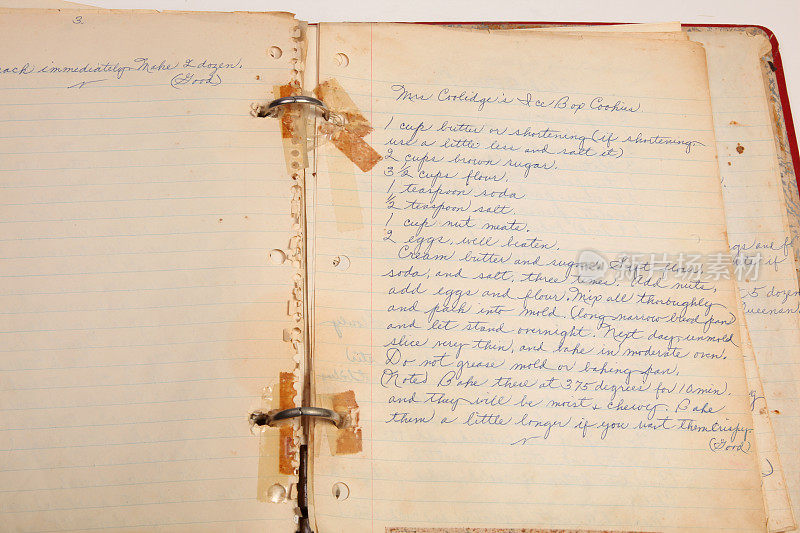 3.
ack immediately. Make 2 dozen.
(Good)
Mrs Coolidge's Ice Box Cookies
1 cup butter or shortening (if shortening,
use a little less and salt it)
2 cups brown sugar.
3 1/2 cups flour.
1 teaspoon soda
1/2 teaspoon salt.
1 cup nut meats.
2 eggs, well beaten.
Cream butter and sugar. Sift flour,
soda, and salt, three times. Add nuts,
add eggs and flour. Mix all thoroughly
and pack into mold. (long narrow bread pan)
and let stand overnight. Next day, unmold
slice very thin, and bake in moderate oven.
Do not grease mold or baking pan.
(Note) Bake these at 375 degrees for 10 min.
and they will be moist & chewy. Bake
them a little longer if you want them crispy.
(Good)
gs and fl
if
5 dozen
新图网
NEWSIMG.CN